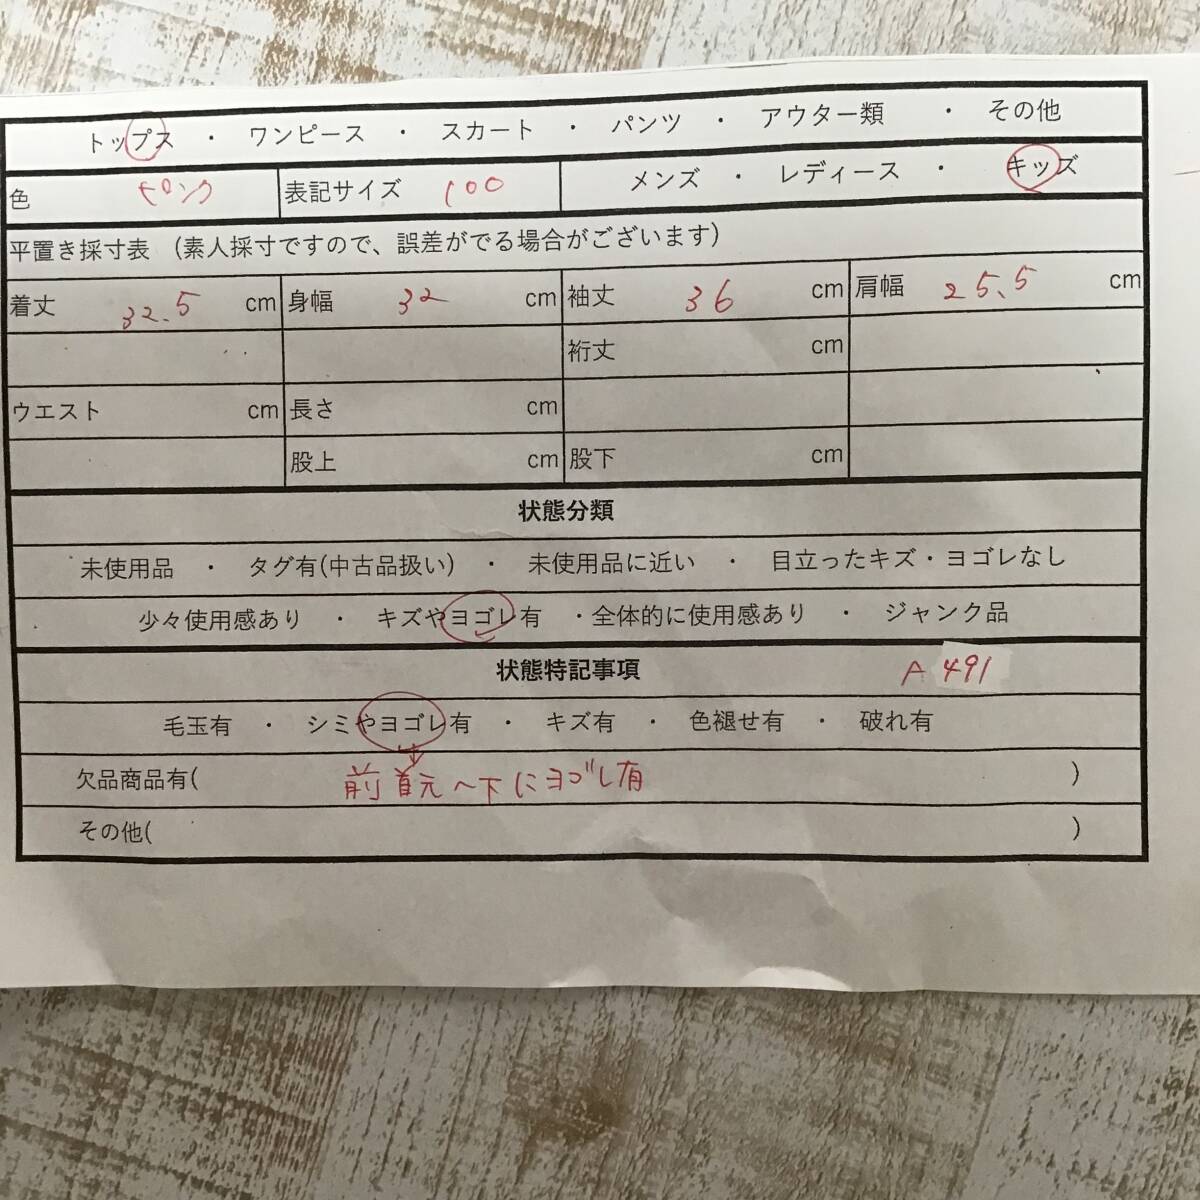 トップス ・ ワンピース ・ スカート ・ パンツ ・ アウター類 ・ その他
色 ピンク 表記サイズ 100 メンズ ・ レディース ・ キッズ
平置き採寸表 (素人採寸ですので、誤差がでる場合がございます)
着丈 32.5 cm 身幅 32 cm 袖丈 36 cm 肩幅 25.5 cm
裄丈 cm
ウエスト cm 長さ cm
股上 cm 股下 cm
状態分類
未使用品 ・ タグ有(中古品扱い) ・ 未使用品に近い ・ 目立ったキズ・ヨゴレなし
少々使用感あり ・ キズやヨゴレ有 ・全体的に使用感あり ・ ジャンク品
状態特記事項 A 491
毛玉有 ・ シミやヨゴレ有 ・ キズ有 ・ 色褪せ有 ・ 破れ有
欠品商品有( 前首元〜下にヨゴレ有 )
その他( )